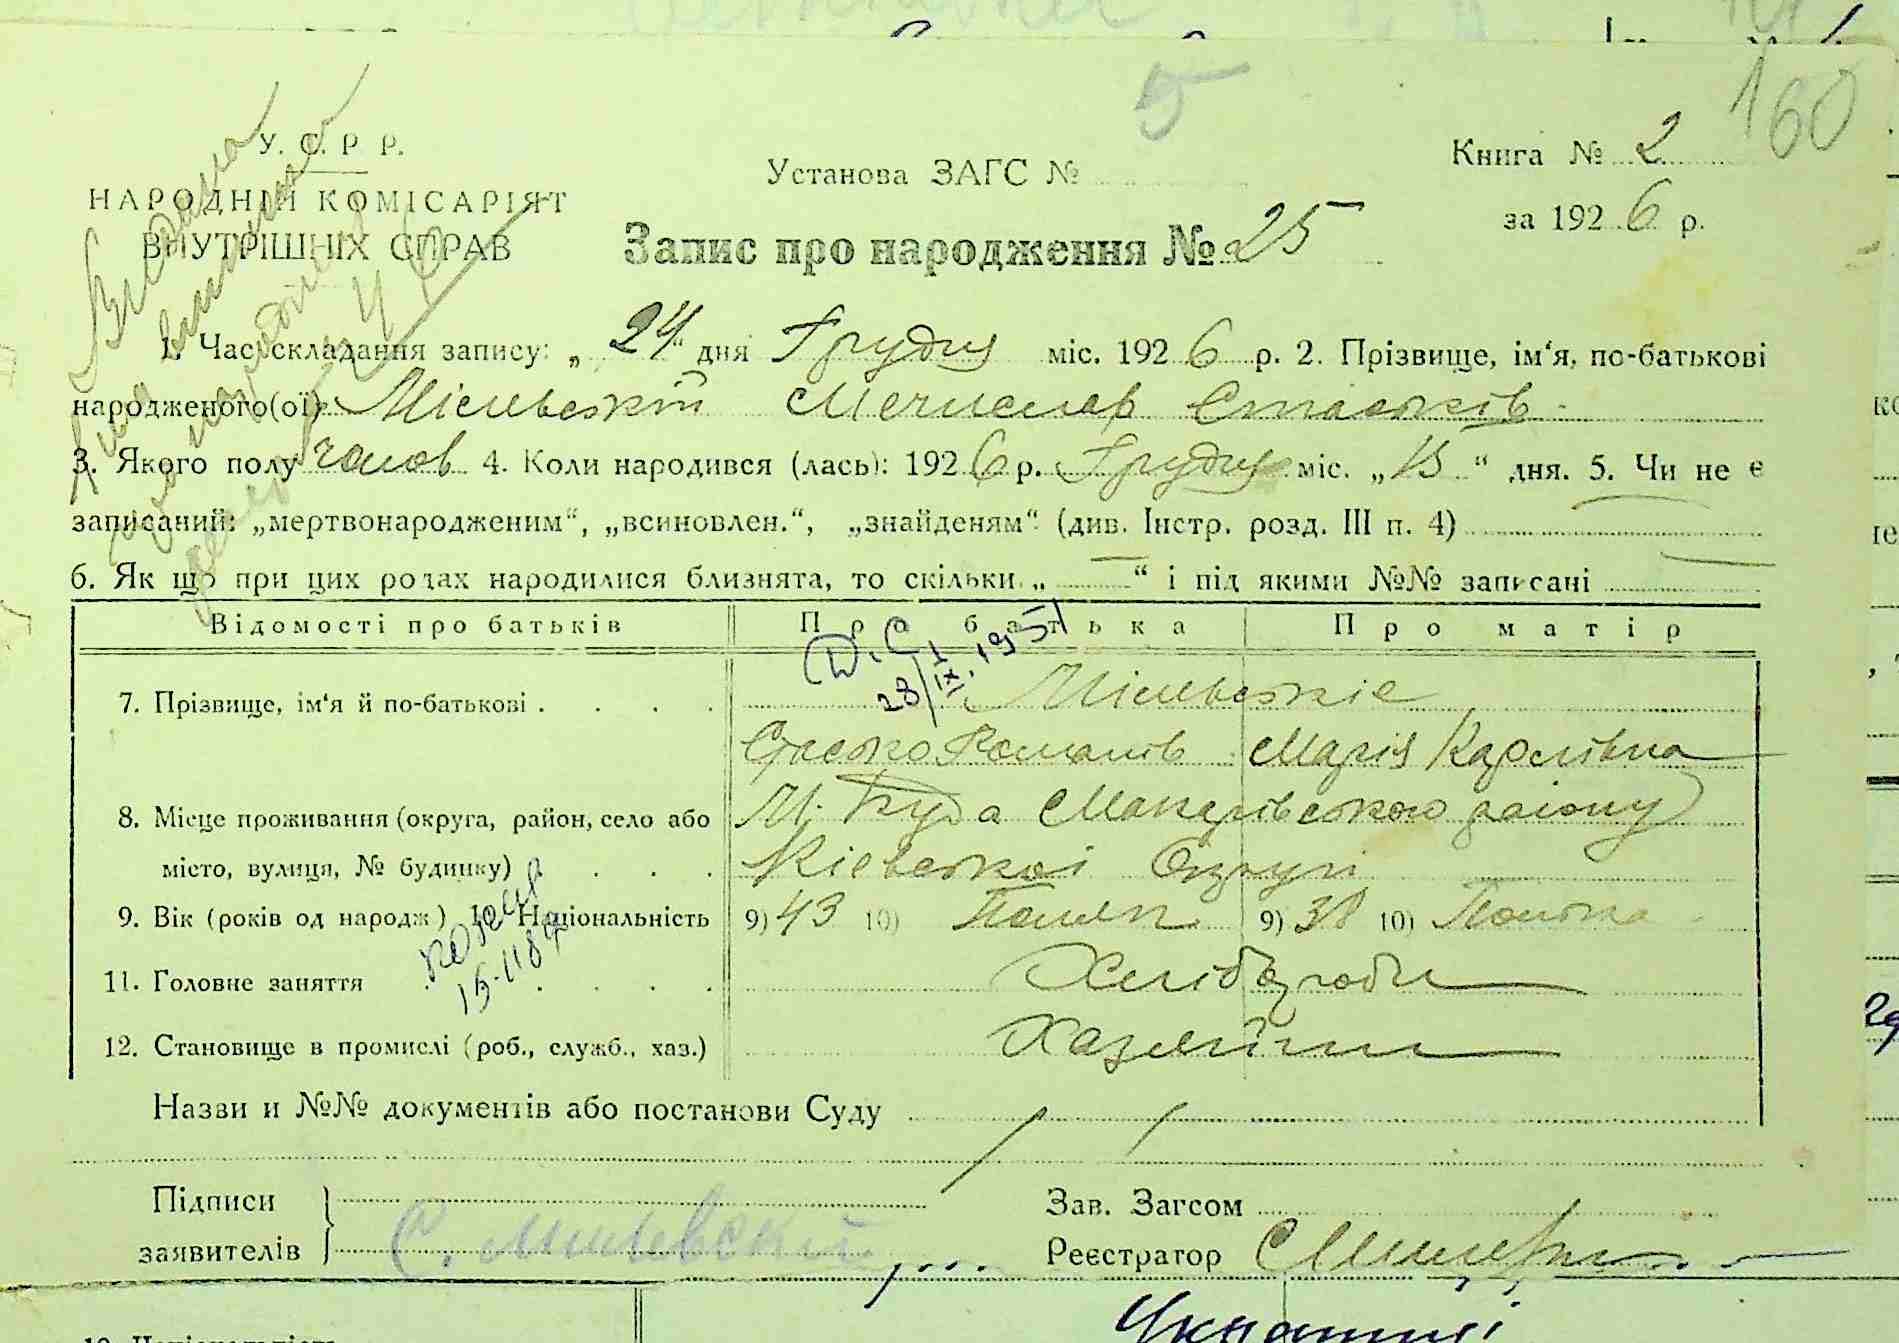 160
5
У. С. Р. Р.
НАРОДНІЙ КОМІСАРІЯТ
ВНУТРІШНІХ СПРАВ
Установа ЗАГС №
Книга № 2
за 1926 р.
Запис про народження № 25
Видана
1. Час складання запису: „24“ дня Грудня міс. 1926 р. 2. Прізвище, ім‘я, по-батькові
народженого(ої) Мілевський Мечислав Стаськів
3. Якого полу чолов 4. Коли народився (лась): 1926 р. Грудня міс. „15“ дня. 5. Чи не є
записаний: „мертвонародженим“, „всиновлен.“, „знайденям“ (див. Інстр. розд. III п. 4)
6. Як що при цих родах народилися близнята, то скільки „—“ і під якими №№ записані —
Відомості про батьків Про батька Про матір
28/IX.1951
7. Прізвище, ім‘я й по-батькові Мілевскіе
Стасько Романів Марія Карлівна
8. Місце проживання (округа, район, село або М. Буда Макарівського району
місто, вулиця, № будинку) Кіевскоі Округи
9. Вік (років од народж) 10. Національність 9) 43 10) Поляк 9) 38 10) Полька
11. Головне заняття Хлібороби
12. Становище в промислі (роб., служб., хаз.) Хазяїни
Назви и №№ документів або постанови Суду
Підписи
заявителів С. Милевский
Зав. Загсом
Реєстратор